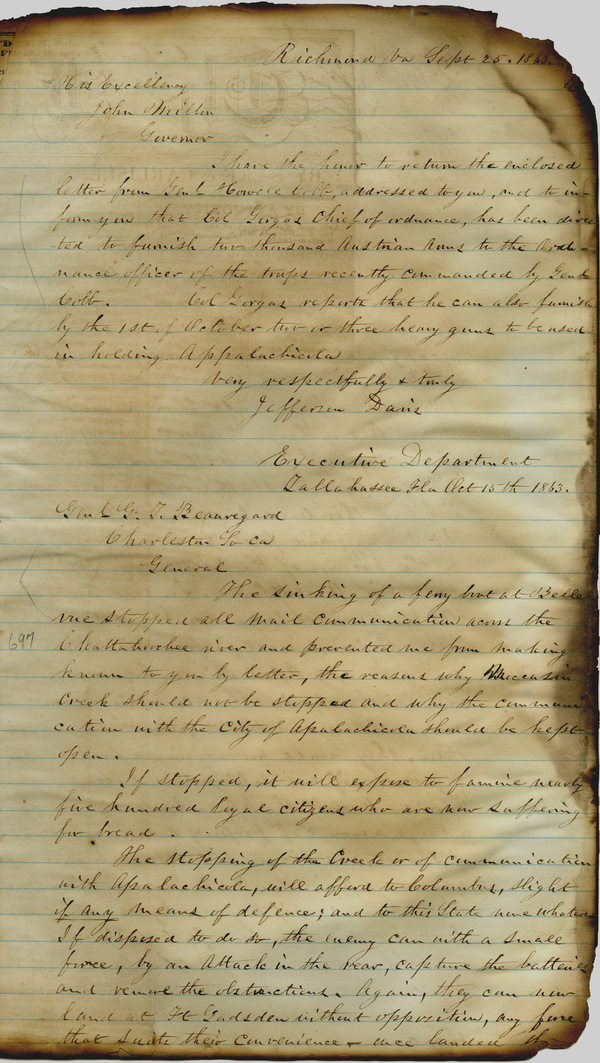 Richmond Va Sept 25. 1863.
His Excellency
John Milton
Governor
I have the honor to return the enclosed
letter from Genl Howell Cobb, addressed to you, and to in-
form you that Col Gorgas Chief of ordnance, has been direc
-ted to furnish two thousand Austrian Arms to the Ord-
nance officer of the troops recently commanded by Genl
Cobb. Col Gorgas reports that he can also furnish
by the 1st of October two or three heavy guns to be used
in holding Appalachicola
Very respectfully & truly
Jefferson Davis
Executive Department
Tallahassee Fla Oct 15th 1863.
Genl G. T. Beauregard
Charleston So Ca
General
The sinking of a ferry boat at Belle
vue stopped all mail communication across the
Chattahoochee river and prevented me from making
known to you by letter, the reasons why Moccasin
Creek should not be stopped and why the communi
cation with the City of Apalachicola should be kept
open.
If stopped, it will expose to famine nearly
five hundred loyal citizens who are now suffering
for bread.
The stopping of the Creek or of communication
with Apalachicola, will afford to Columbus, slight
if any means of defence; and to this State none whatever
If disposed to do so, the enemy can with a small
force, by an attack in the rear, capture the batteries
and remove the obstructions. Again, they can now
land at Ft Gadsden without opposition, any force
that suits their convenience & once landed
697